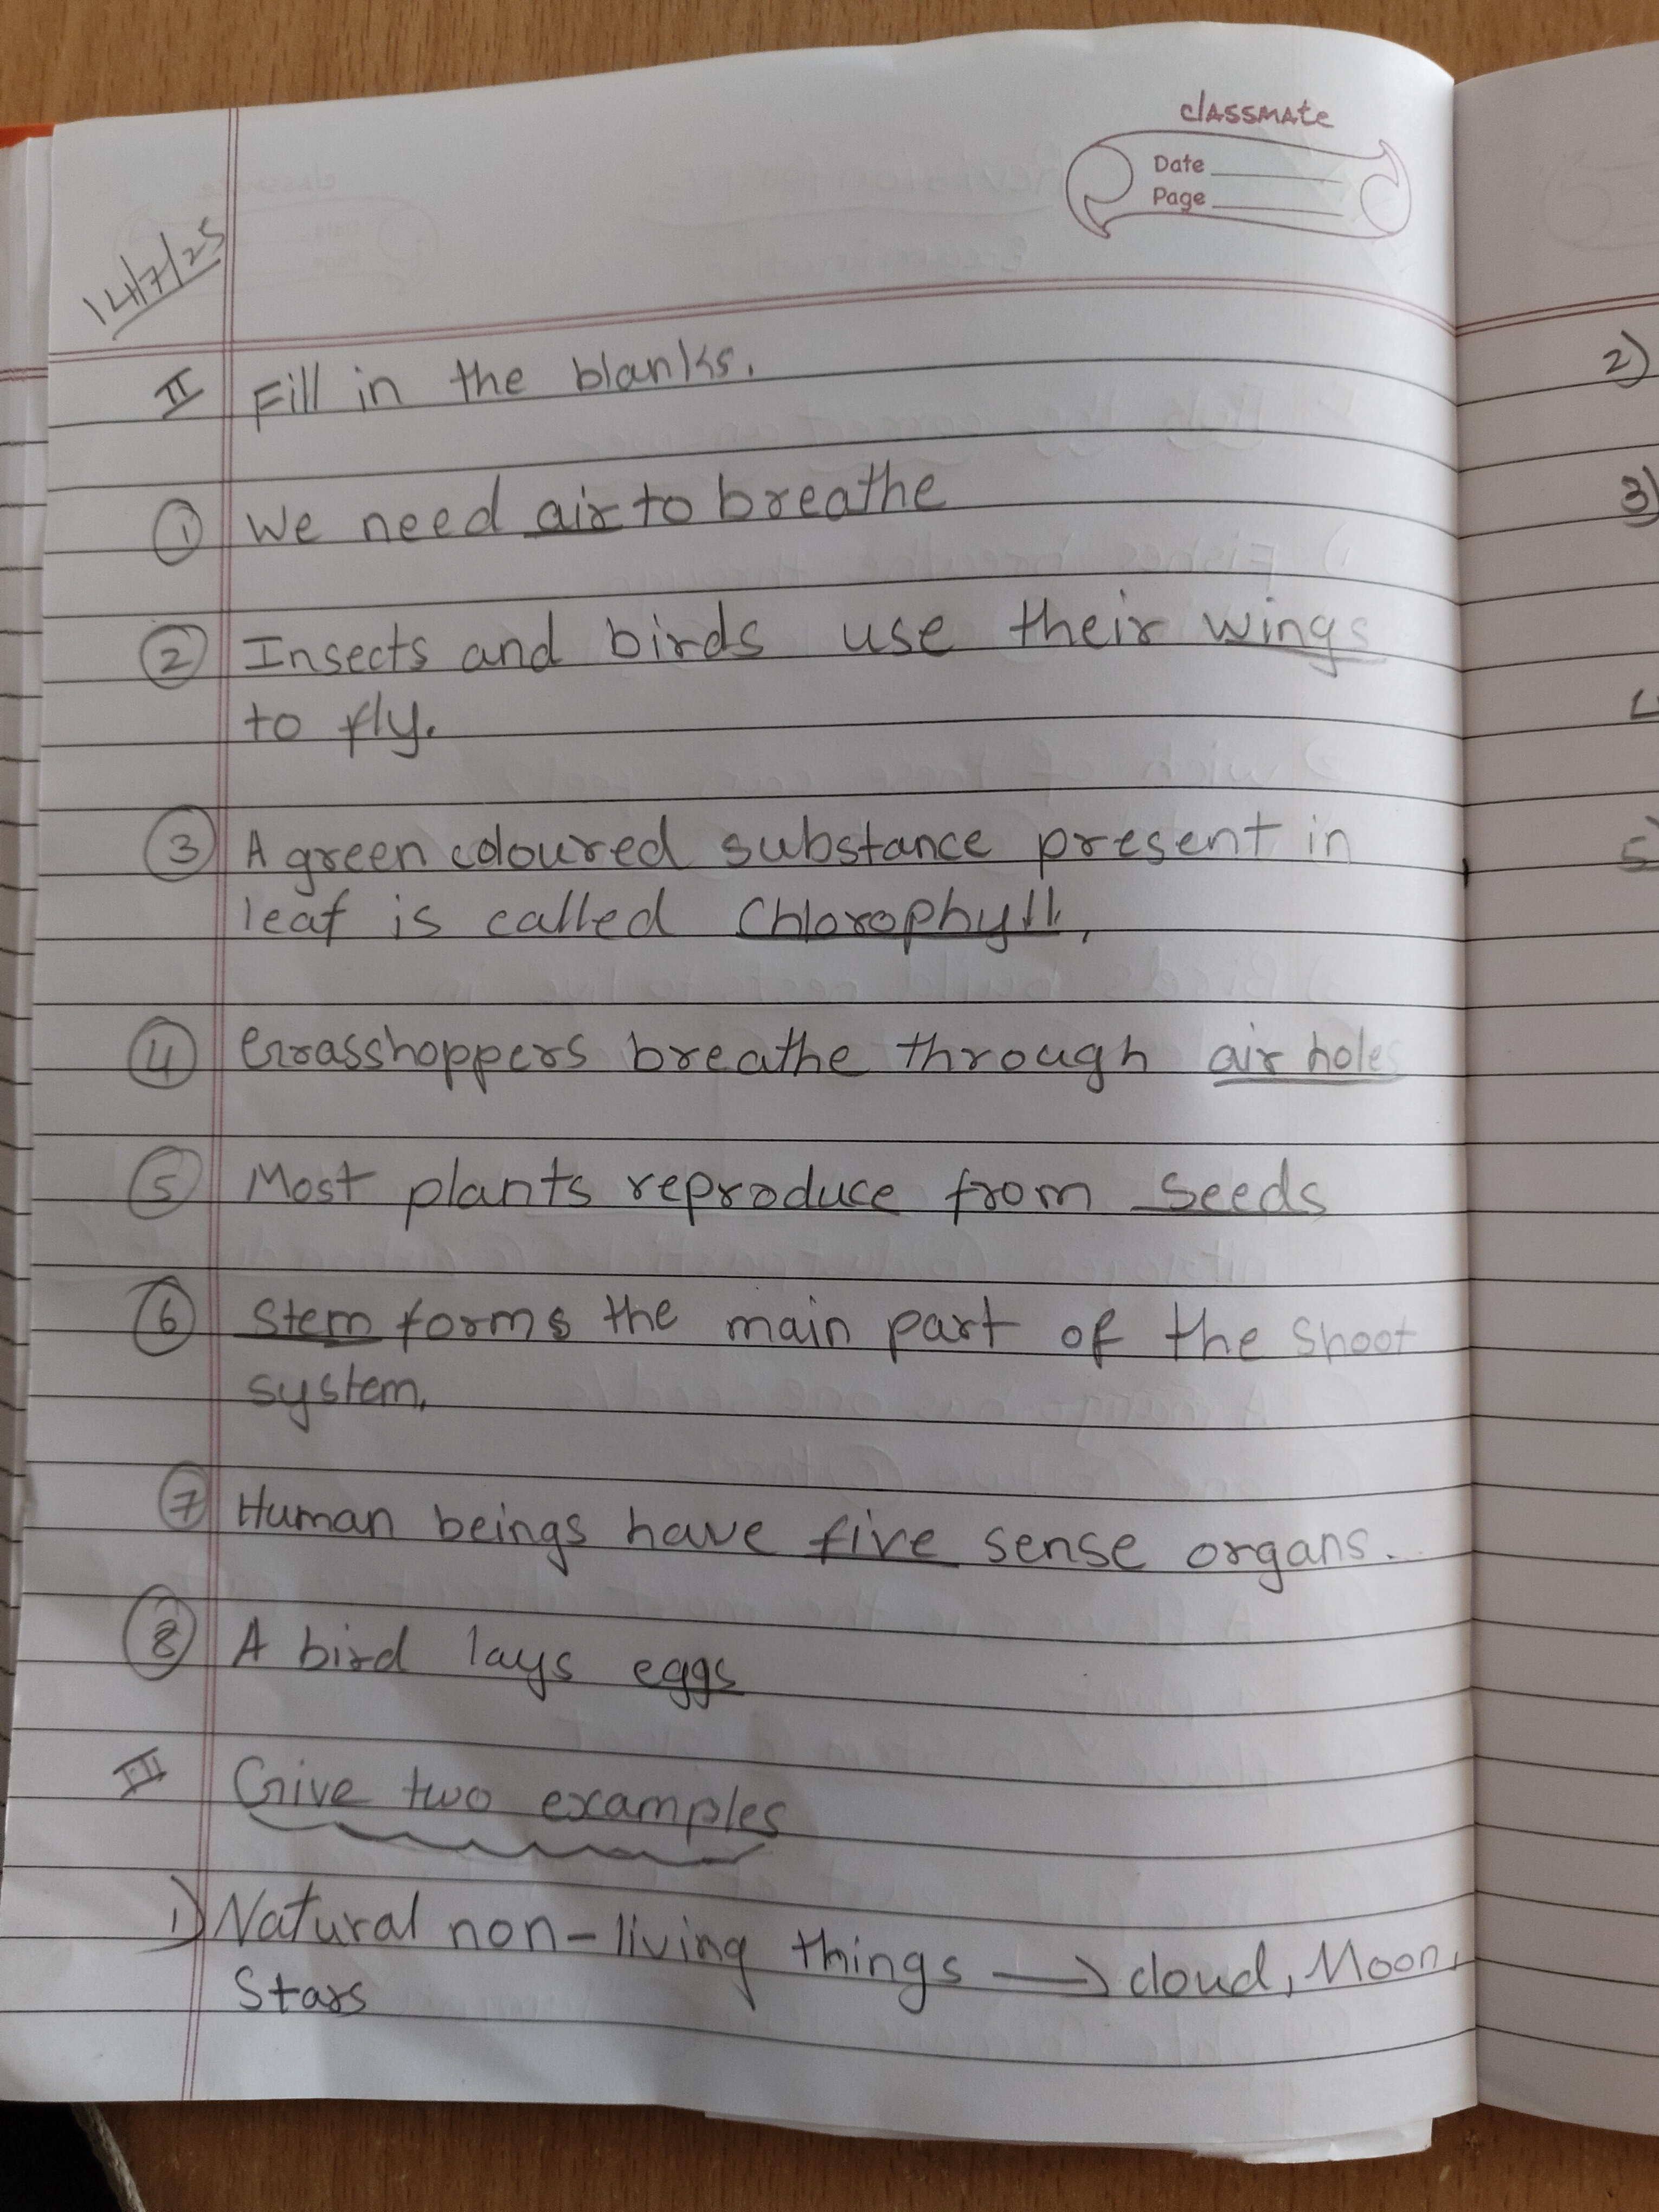 classmate
Date
Page
14/7/25
II Fill in the blanks.
① We need air to breathe
② Insects and birds use their wings
to fly.
③ A green coloured substance present in
leaf is called Chlorophyll,
④ Grasshoppers breathe through air holes
⑤ Most plants reproduce from seeds
⑥ Stem forms the main part of the shoot
system.
⑦ Human beings have five sense organs.
⑧ A bird lays eggs
III Give two examples
1) Natural non-living things → cloud, Moon,
Stars
2)
3)
5)